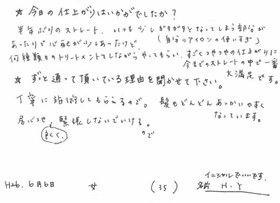 ★ 今日の仕上がりはいかがでしたか?
半年ぶりのストレート、いつも少しギザギザとなってしまう部分が
あったりで心配が少しあったけど (自分にアイロンの使いすぎ)
何種類ものトリートメントでしながらやってもらい、すごくつやつやの仕上がりに
今までのストレートの中で一番
大満足です。
★ ずっと通って頂いている理由を聞かせて下さい。
丁寧に施術してもらえるので、髪もどんどんあつかいやすく
なっています。
居心地も 緊張しないでいける。
らくで、
ので
H26、6月6日 女 (35)
イニシャルでいいです。
名前 H・Y